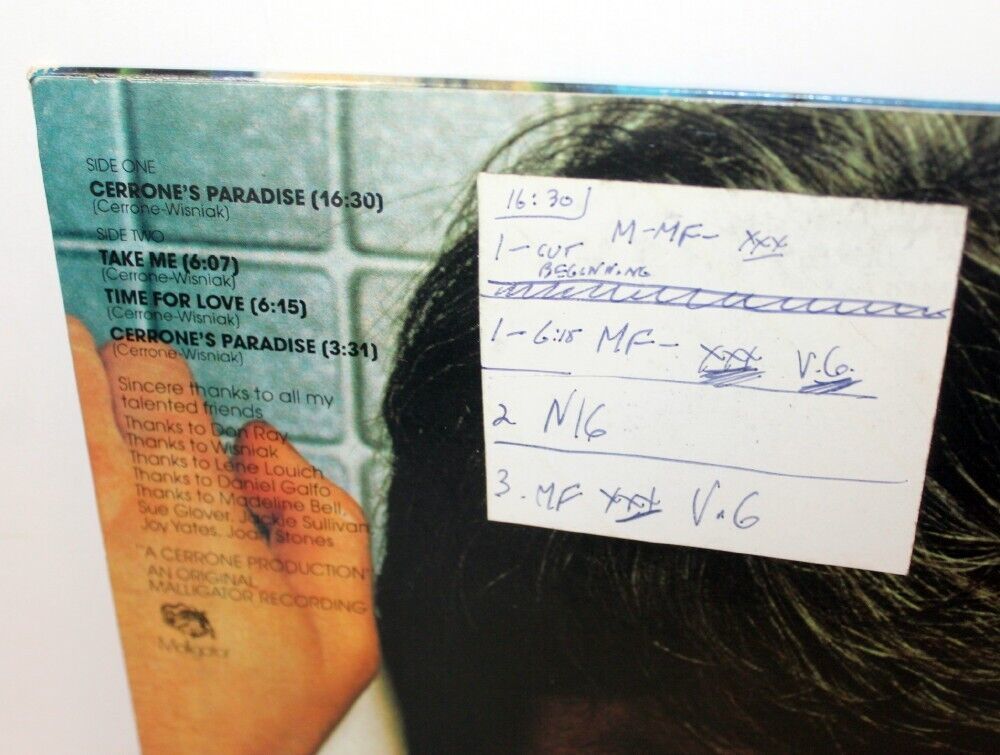 SIDE ONE
CERRONE'S PARADISE (16:30)
(Cerrone-Wisniak)
SIDE TWO
TAKE ME (6:07)
(Cerrone-Wisniak)
TIME FOR LOVE (6:15)
(Cerrone-Wisniak)
CERRONE'S PARADISE (3:31)
(Cerrone-Wisniak)
Sincere thanks to all my
talented friends
Thanks to Don Ray
Thanks to Wisniak
Thanks to Lene Louich
Thanks to Daniel Galfo
Thanks to Madeline Bell,
Sue Glover, Jackie Sullivan
Joy Yates, Joan Stones
"A CERRONE PRODUCTION"
AN ORIGINAL
MALLIGATOR RECORDING
Malligator
16:30
1- CUT M-MF- XXX
BEGINNING
1- 6:15 MF- XXX V.G.
2 N16
3. MF XXX V.G